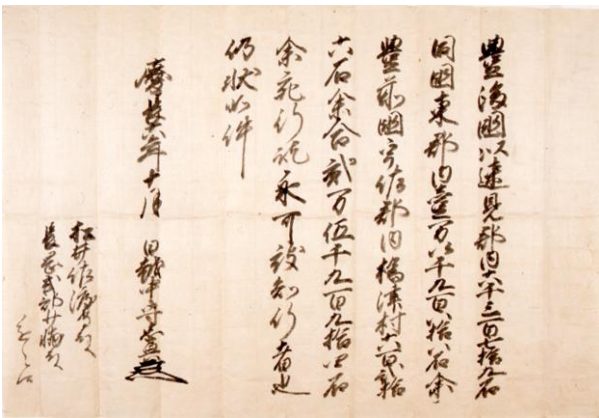 豊後國以速見郡内六千三百七拾九石
同國東郡内壹万八千九百八拾八石余
豊前國宇佐郡内橋津村六百弐拾
六石余合弐万伍千九百九拾四石
余宛行訖永可被知行者也
仍状如件
慶長六年十月 日 越中守
松井佐渡守殿
長岡式部少輔殿